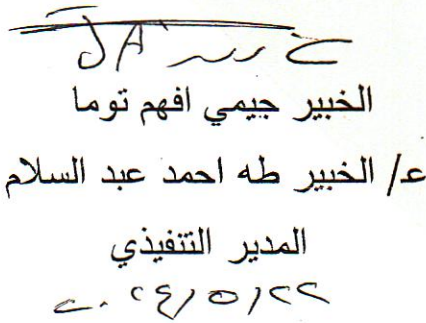 الخبير جيمي افهم توما
ع/ الخبير طه احمد عبد السلام
المدير التنفيذي
٢٠٢٤/٥/٢٢